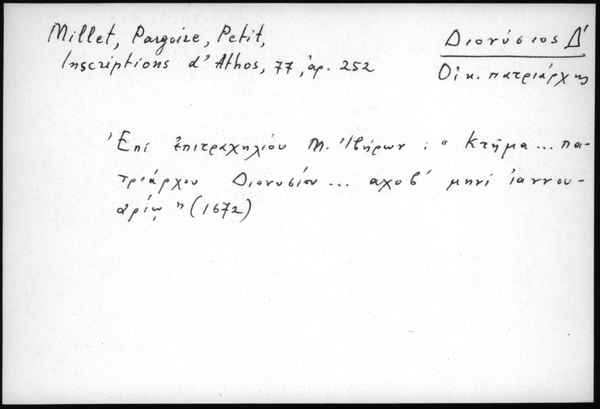 Millet, Pargoire, Petit,
Inscriptions d'Athos, 77, ἀρ. 252
Διονύσιος Δ'
Οἰκ. πατριάρχης
Ἐπί ἐπιτραχηλίου Μ. Ἰβήρων : " Κτῆμα ... πα-
τριάρχου Διονυσίου ... αχοβ' μηνί ἰαννου-
αρίῳ " (1672)